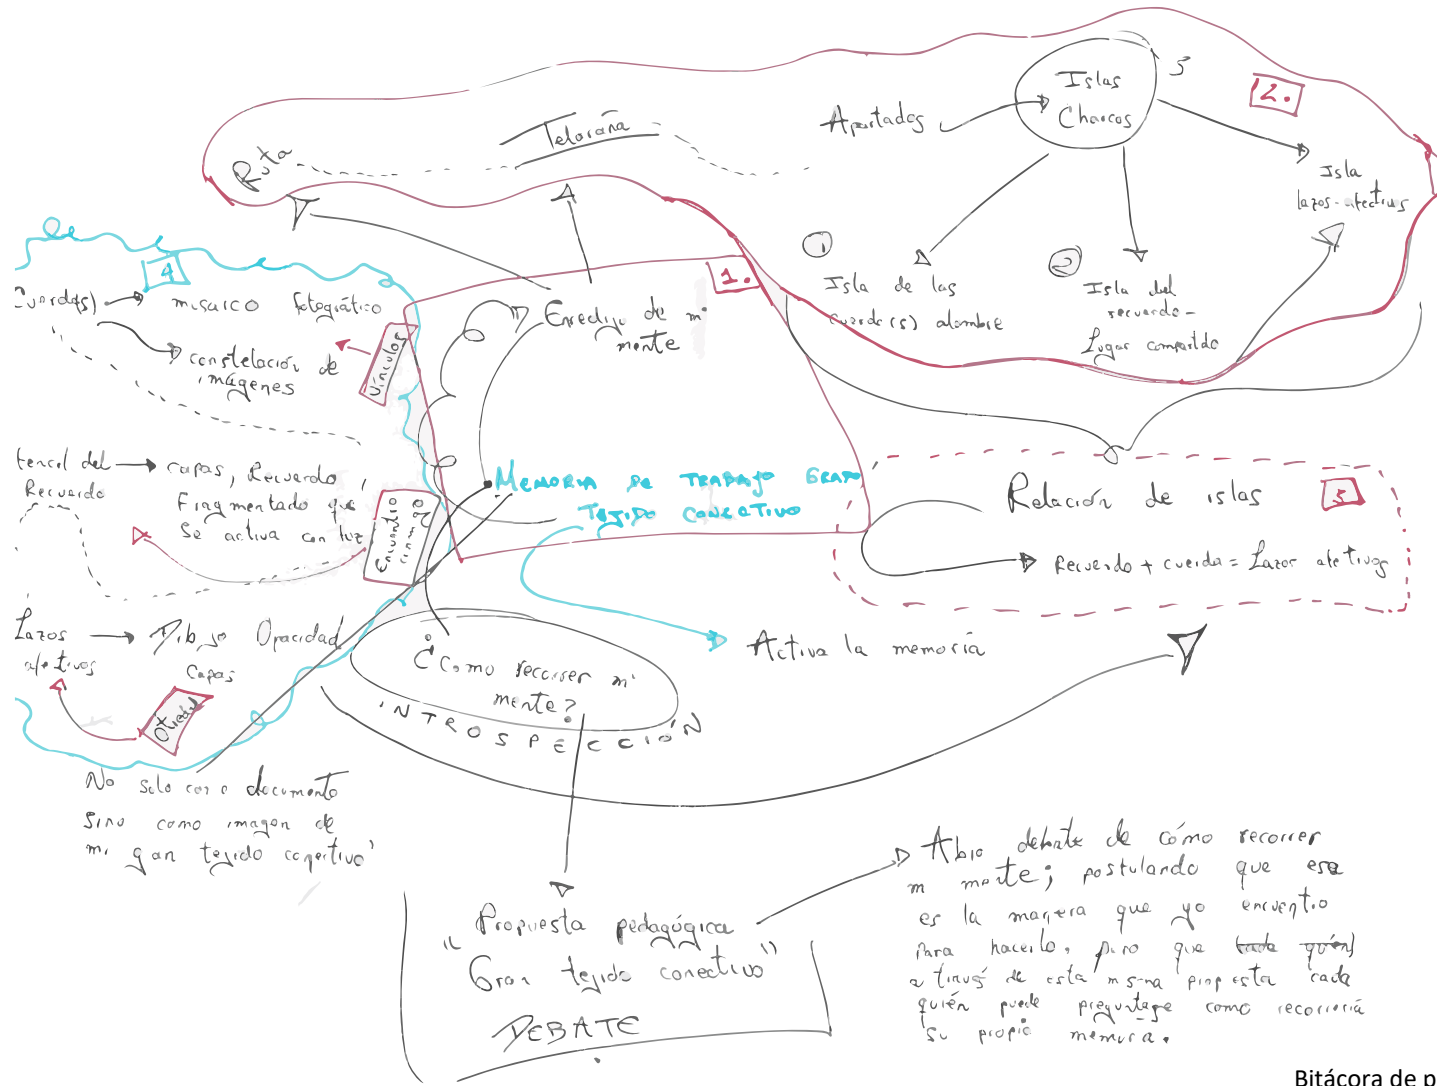 Ruta
Telaraña
Apartados
Islas
Charcos
3
2.
Isla
lazos-afectivos
1
Isla de las
cuerda(s) alambre
2
Isla del
recuerdo-
Lugar compartido
1.
Enredijo de mi
mente
4
Cuerda(s)
fotográfico
constelación de
imágenes
Vínculos
MEMORIA DE TRABAJO GRADO
TEJIDO CONECTIVO
tencil del
Recuerdo
capas, Recuerdo
Fragmentado que
se activa con luz
Encuentro
conmigo
Relación de islas
3
Recuerdo + cuerda = Lazos afectivos
Lazos
afectivos
Dibujo Opacidad
Capas
Otredad
Activa la memoria
¿Como recorrer mi
mente?
INTROSPECCIÓN
No solo como documento
sino como imagen de
mi gran tejido conectivo"
Propuesta pedagógica
"Gran tejido conectivo"
DEBATE
Abro debate de cómo recorrer
mi mente; postulando que esa
es la manera que yo encuentro
para hacerlo, pero que (cada quién)
a través de esta misma propuesta cada
quién puede preguntarse como recorrería
su propia memoria.
Bitácora de p